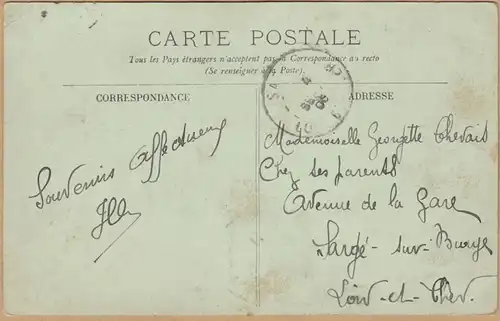 CARTE POSTALE
Tous les Pays étrangers n'acceptent pas la Correspondance au recto
(Se renseigner à la Poste).
CORRESPONDANCE
ADRESSE
Souvenirs Affectueux
Mademoiselle Georgette Chevais
Chez ses parents
Avenue de la Gare
Sargé-sur-Braye
Loir-et-Cher